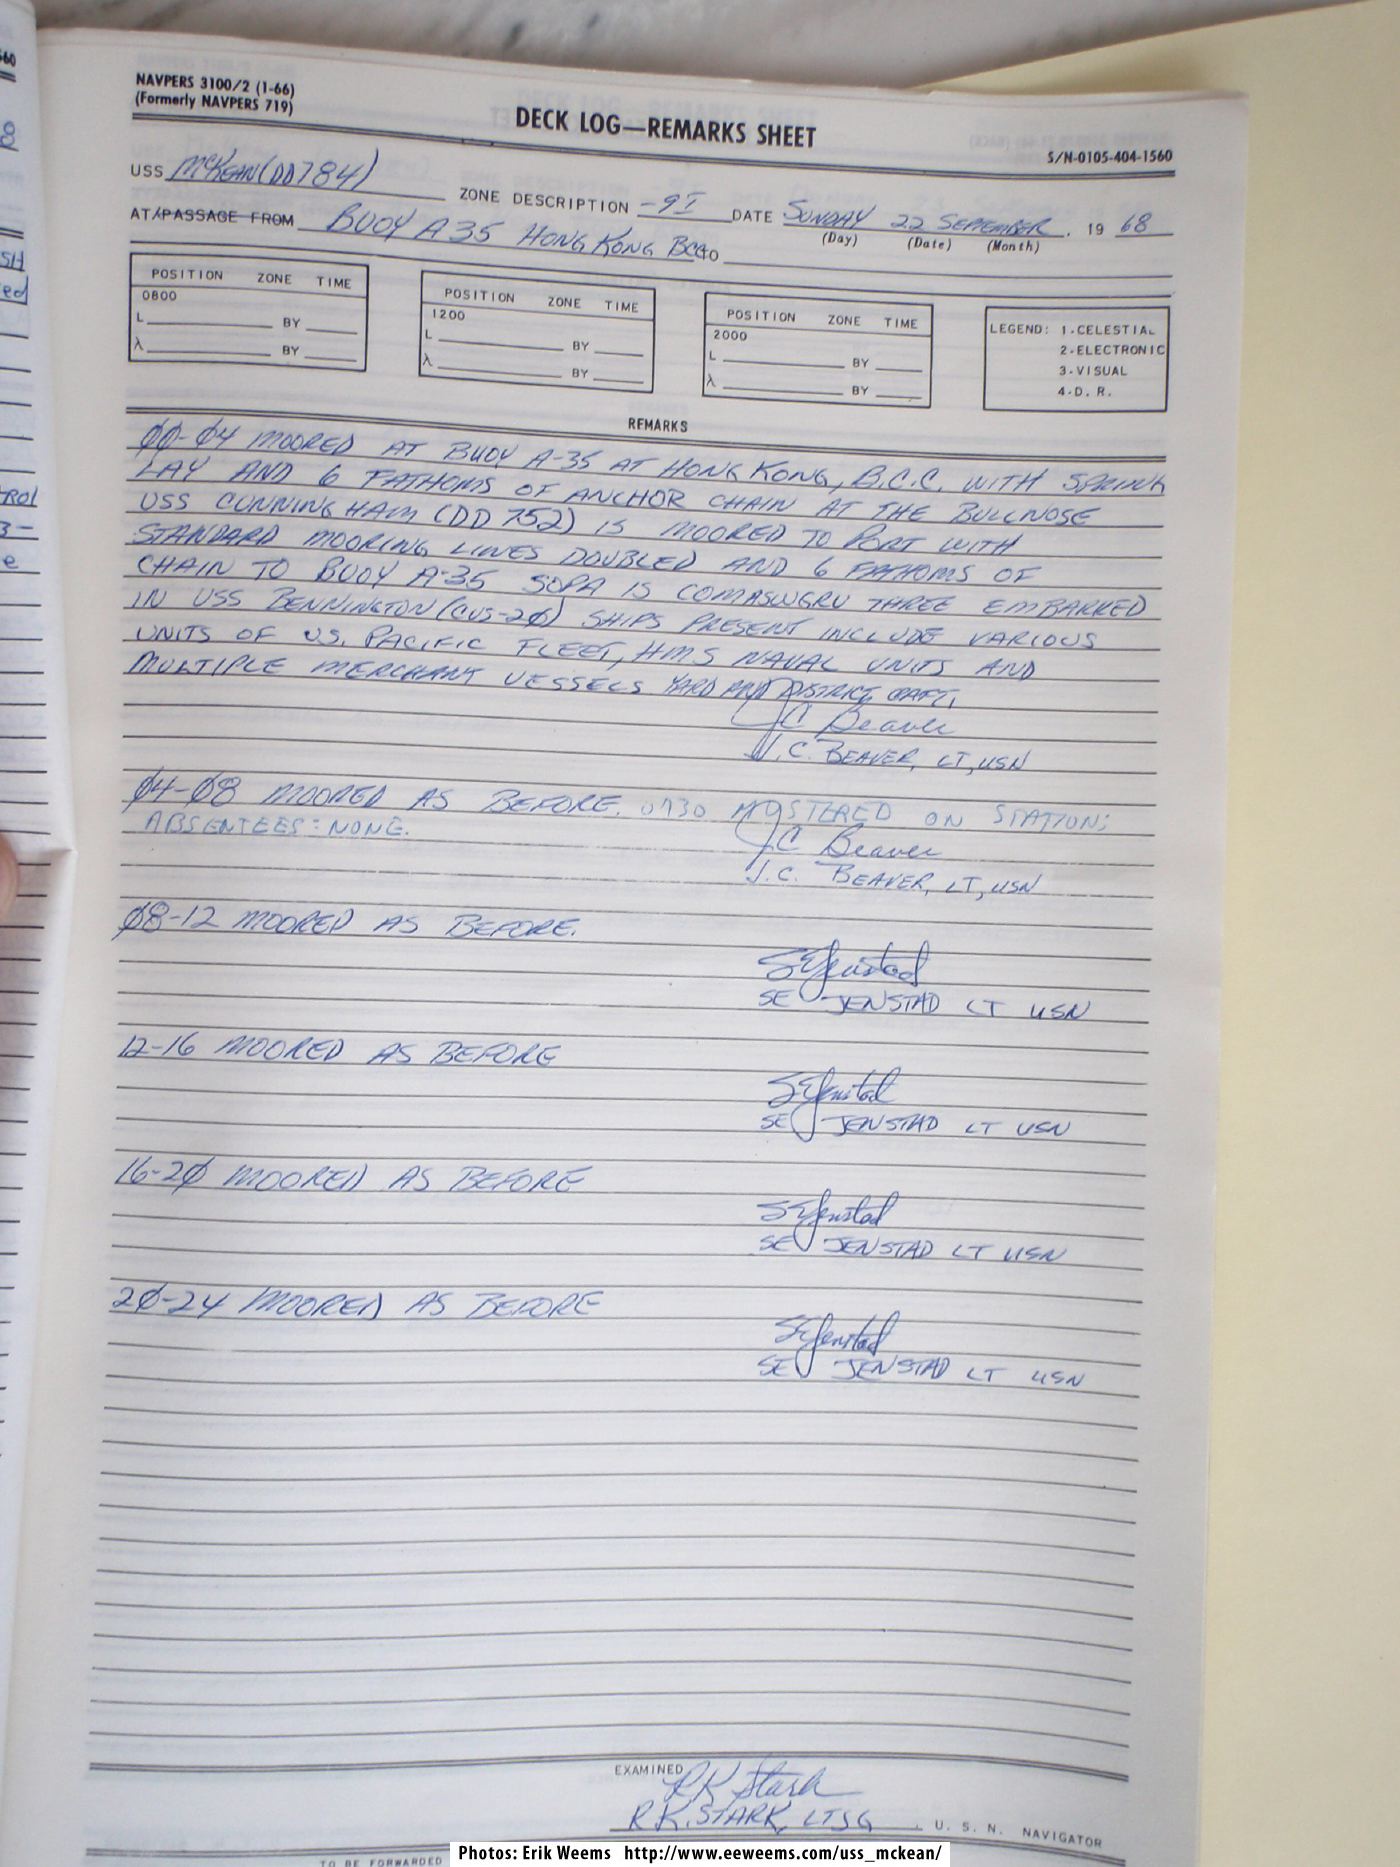 NAVPERS 3100/2 (1-66)
(Formerly NAVPERS 719)
DECK LOG—REMARKS SHEET
S/N-0105-404-1560
USS McKEAN (DD784) ZONE DESCRIPTION -9I DATE SUNDAY 22 SEPTEMBER, 19 68
(Day) (Date) (Month)
AT/PASSAGE FROM BUOY A35 HONG KONG BCC TO
POSITION ZONE TIME
0800
L BY
λ BY
POSITION ZONE TIME
1200
L BY
λ BY
POSITION ZONE TIME
2000
L BY
λ BY
LEGEND: 1-CELESTIAL
2-ELECTRONIC
3-VISUAL
4-D. R.
REMARKS
00-04 MOORED AT BUOY A-35 AT HONG KONG, B.C.C. WITH SPRING
LAY AND 6 FATHOMS OF ANCHOR CHAIN AT THE BULLNOSE
USS CUNNINGHAM (DD 752) IS MOORED TO PORT WITH
STANDARD MOORING LINES DOUBLED AND 6 FATHOMS OF
CHAIN TO BUOY A-35 SOPA IS COMASWGRU THREE EMBARKED
IN USS BENNINGTON (CVS-20) SHIPS PRESENT INCLUDE VARIOUS
UNITS OF U.S. PACIFIC FLEET, HMS NAVAL UNITS AND
MULTIPLE MERCHANT VESSELS YARD AND DISTRICT CRAFT.
JC Beaver
J.C. BEAVER, LT, USN
04-08 MOORED AS BEFORE. 0730 MUSTERED ON STATION;
ABSENTEES: NONE.
JC Beaver
J.C. BEAVER, LT, USN
08-12 MOORED AS BEFORE.
SE Jenstad
SE JENSTAD LT USN
12-16 MOORED AS BEFORE
SE Jenstad
SE JENSTAD LT USN
16-20 MOORED AS BEFORE
SE Jenstad
SE JENSTAD LT USN
20-24 MOORED AS BEFORE
SE Jenstad
SE JENSTAD LT USN
EXAMINED
RK Stark
R.K. STARK, LTJG, U. S. N. NAVIGATOR
TO BE FORWARDED
Photos: Erik Weems http://www.eeweems.com/uss_mckean/